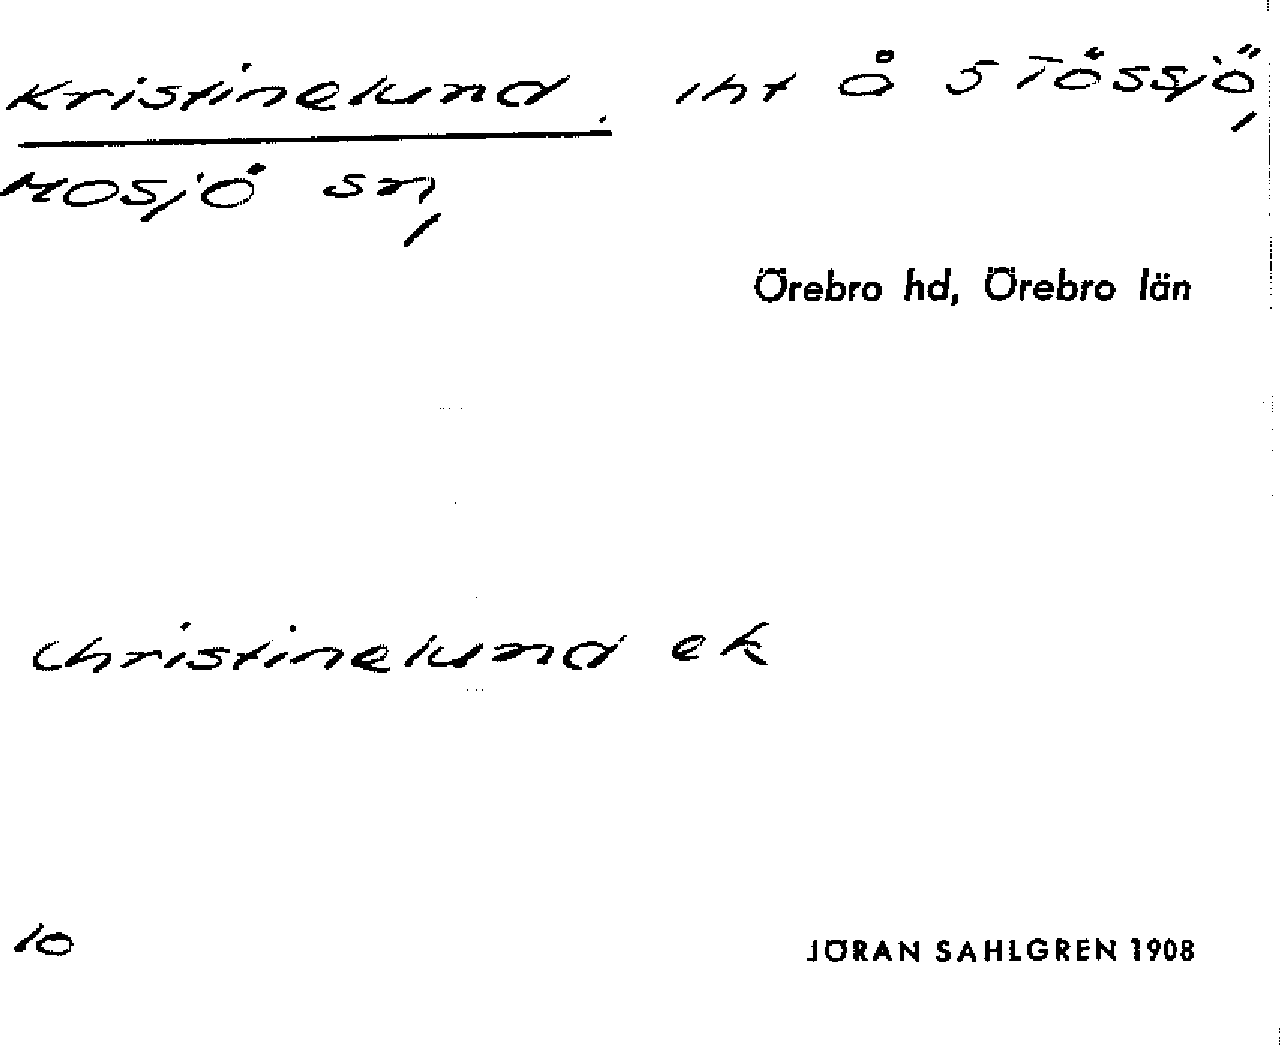 Kristinelund. iht å 5 Tössjö,
Mosjö sn,
Örebro hd, Örebro län
Christinelund ek
10
JÖRAN SAHLGREN 1908